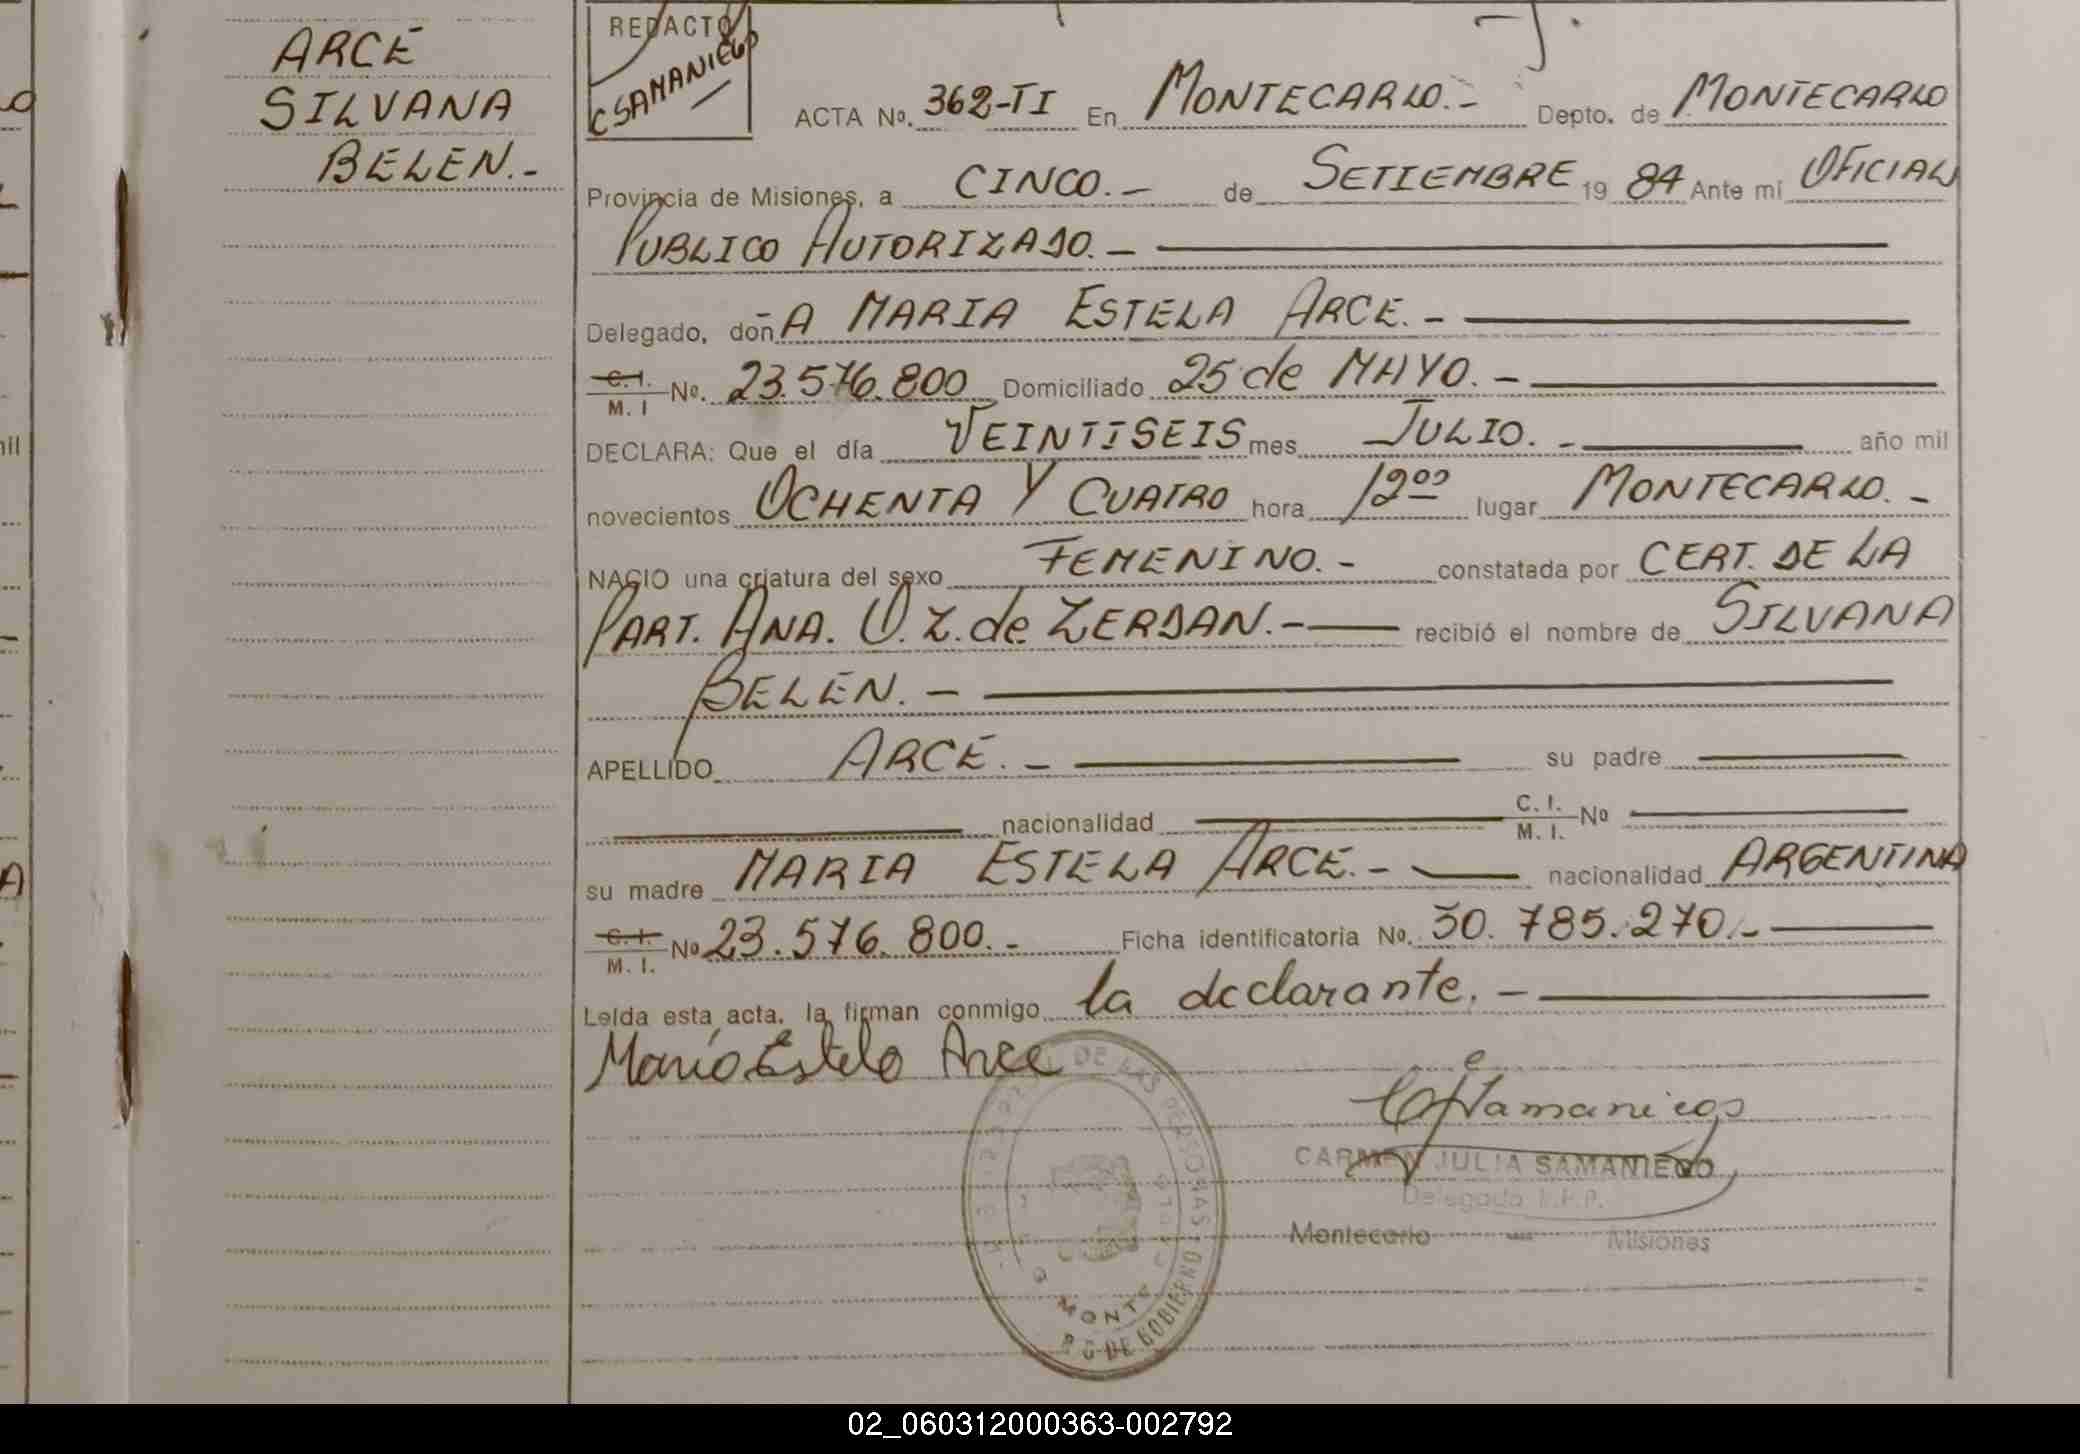 ARCE
SILVANA
BELEN.-
REDACTO
C SAMANIEGO
ACTA No. 362-TI En MONTECARLO.- Depto. de MONTECARLO
Provincia de Misiones, a CINCO.- de SETIEMBRE 19 84 Ante mi OFICIAL
PUBLICO AUTORIZADO.-
Delegado, doñA MARIA ESTELA ARCE.-
C. I.
M. I No. 23.576.800 Domiciliado 25 de MAYO.-
DECLARA: Que el día VEINTISEIS mes JULIO.- año mil
novecientos OCHENTA Y CUATRO hora 12 00 lugar MONTECARLO.-
NACIO una criatura del sexo FEMENINO.- constatada por CERT. DE LA
PART. ANA. O. Z. de ZERDAN.- recibió el nombre de SILVANA
BELEN.-
APELLIDO ARCE.- su padre
nacionalidad C. I. M. I. No
su madre MARIA ESTELA ARCE.- nacionalidad ARGENTINA
C. I.
M. I. No 23.576.800.- Ficha identificatoria No. 30.785.270.-
Leída esta acta, la firman conmigo la declarante.-
María Estela Arce
CARMEN JULIA SAMANIEGO
Delegada
Montecarlo - Misiones
DE LAS PERSONAS
MONTE
DE GOBIERNO
02_060312000363-002792